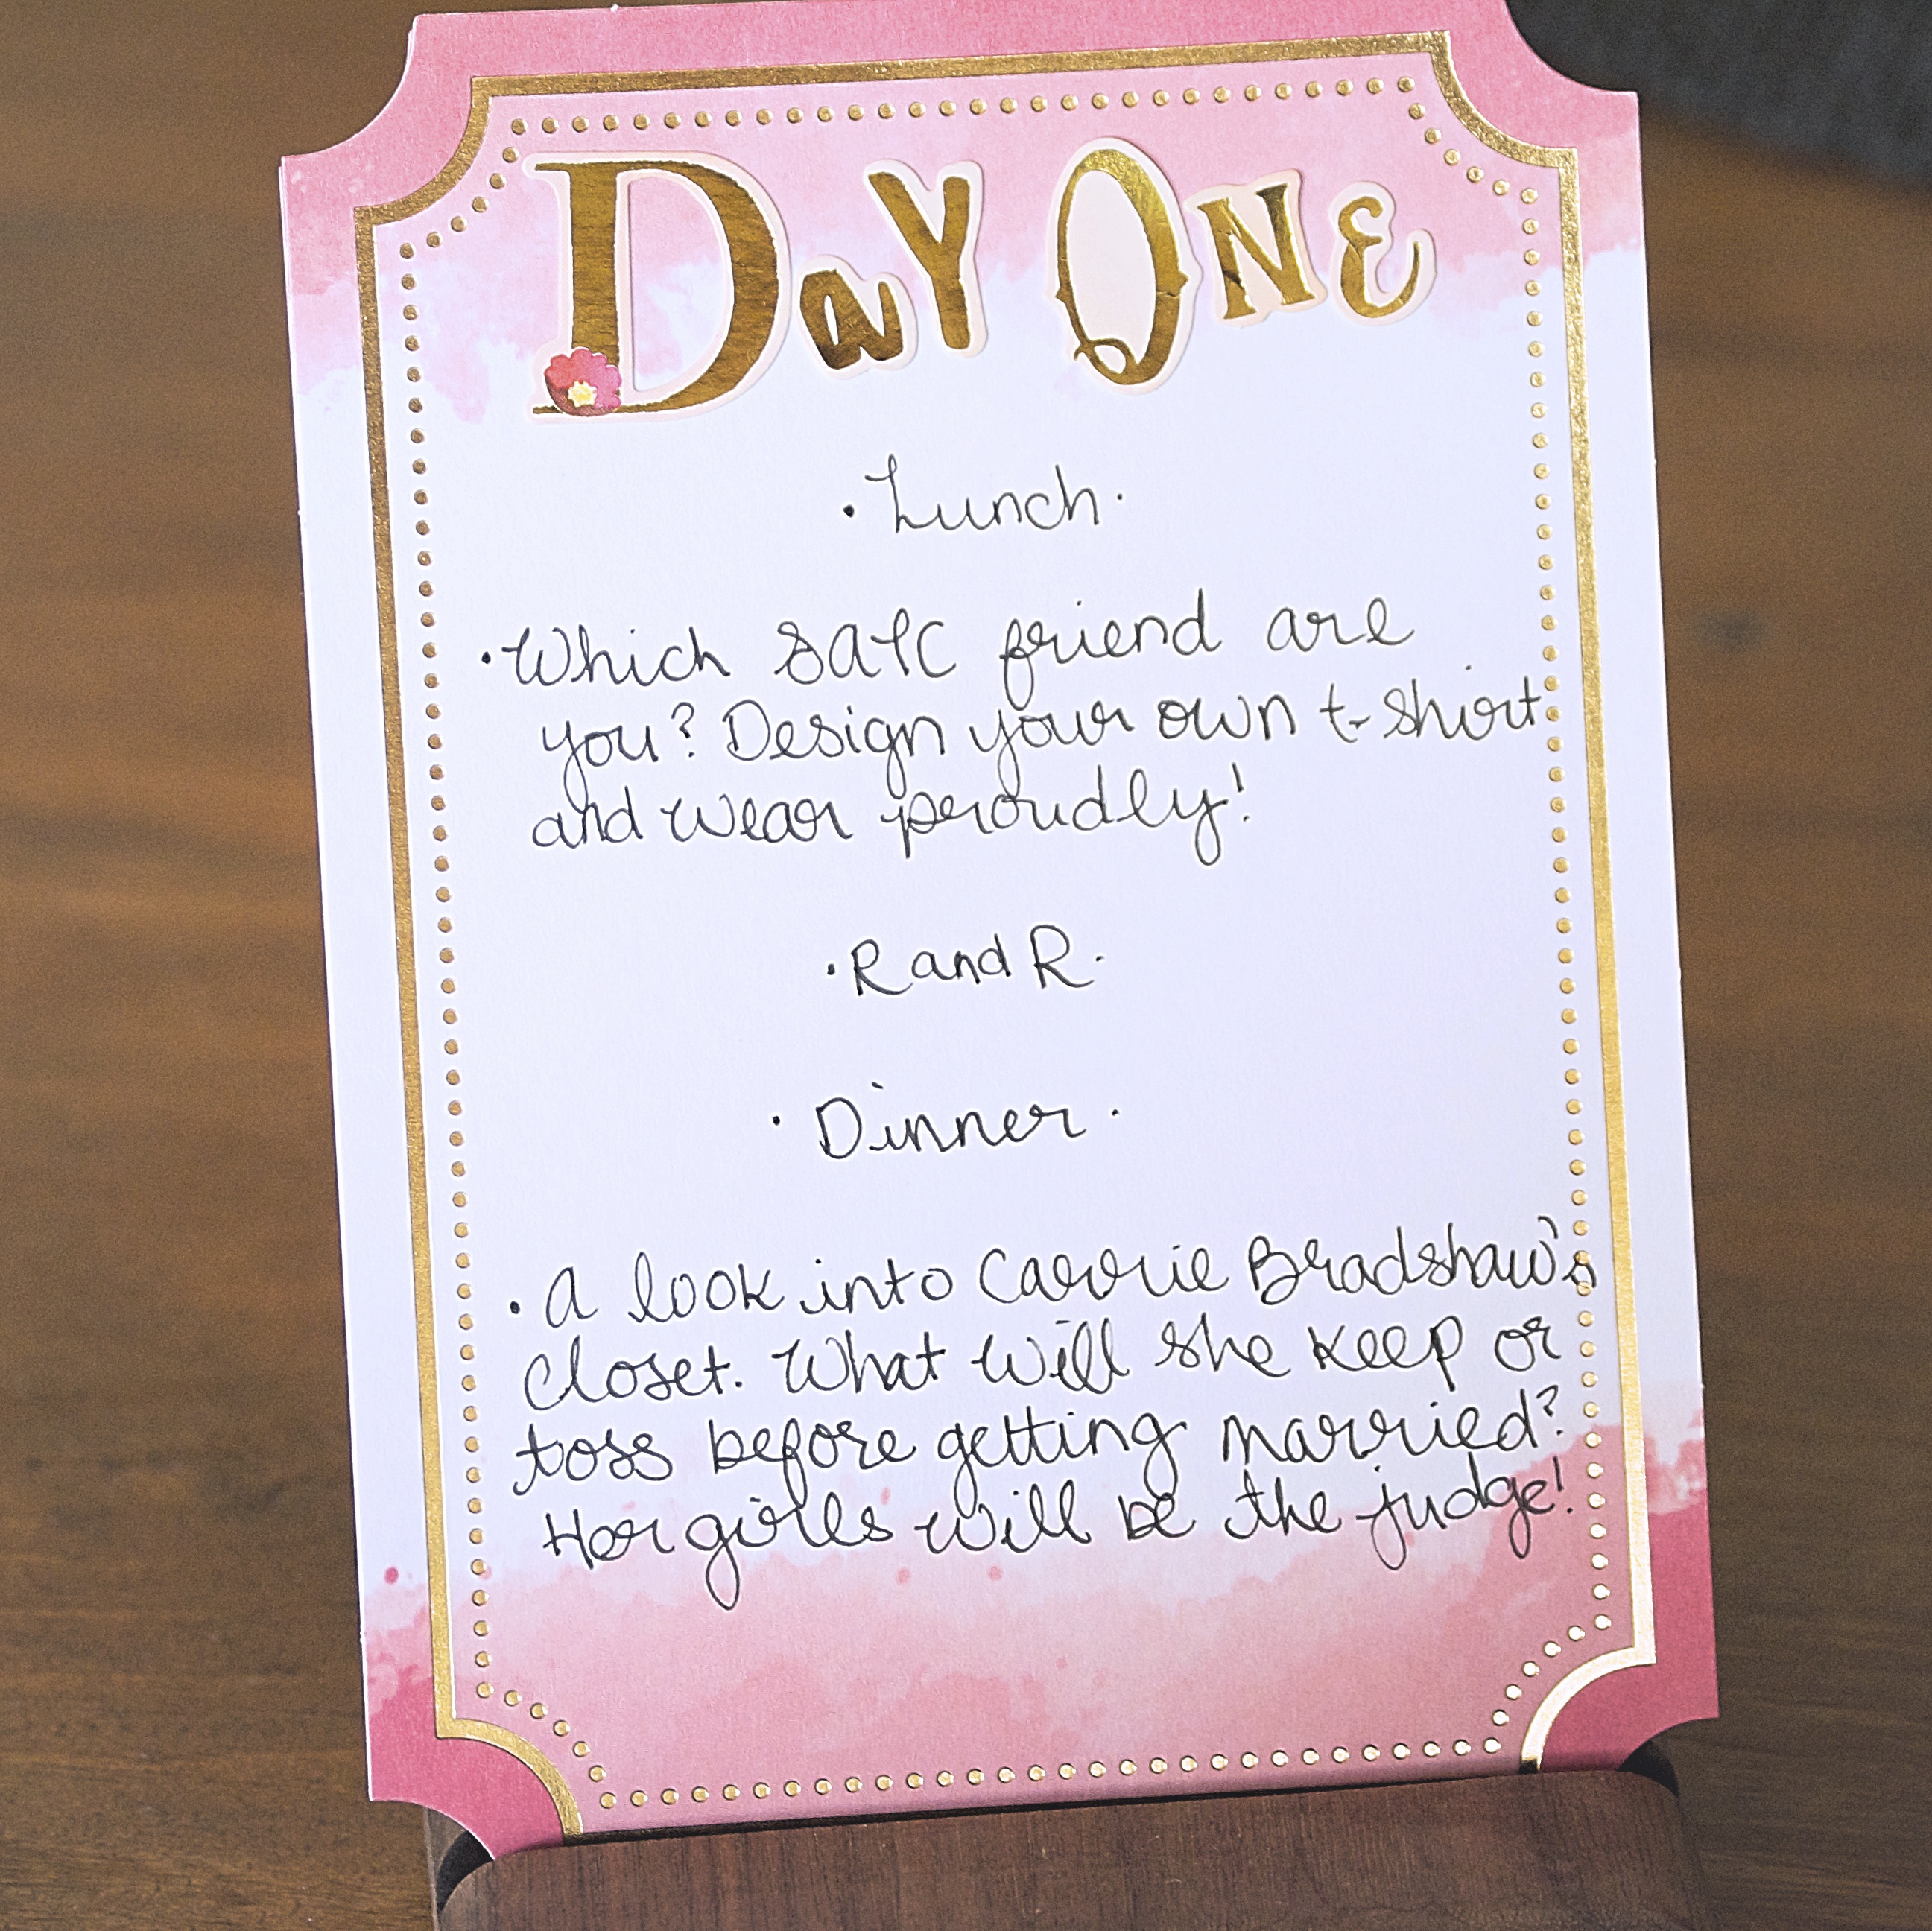 DaY ONE
·Lunch·
·Which SATC friend are
you? Design your own t-shirt
and wear proudly!
·R and R·
·Dinner·
·A look into Carrie Bradshaw's
closet. What will she keep or
toss before getting married?
Her girls will be the judge!